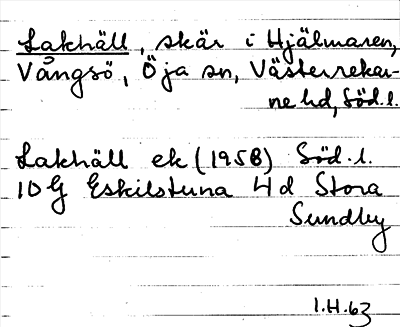 Lakhäll, skär i Hjälmaren,
Vångsö, Öja sn, Västerrekar-
ne hd, Söd.l.
Lakhäll ek (1958) Söd.l.
10G Eskilstuna 4d Stora
Sundby
I.H.63